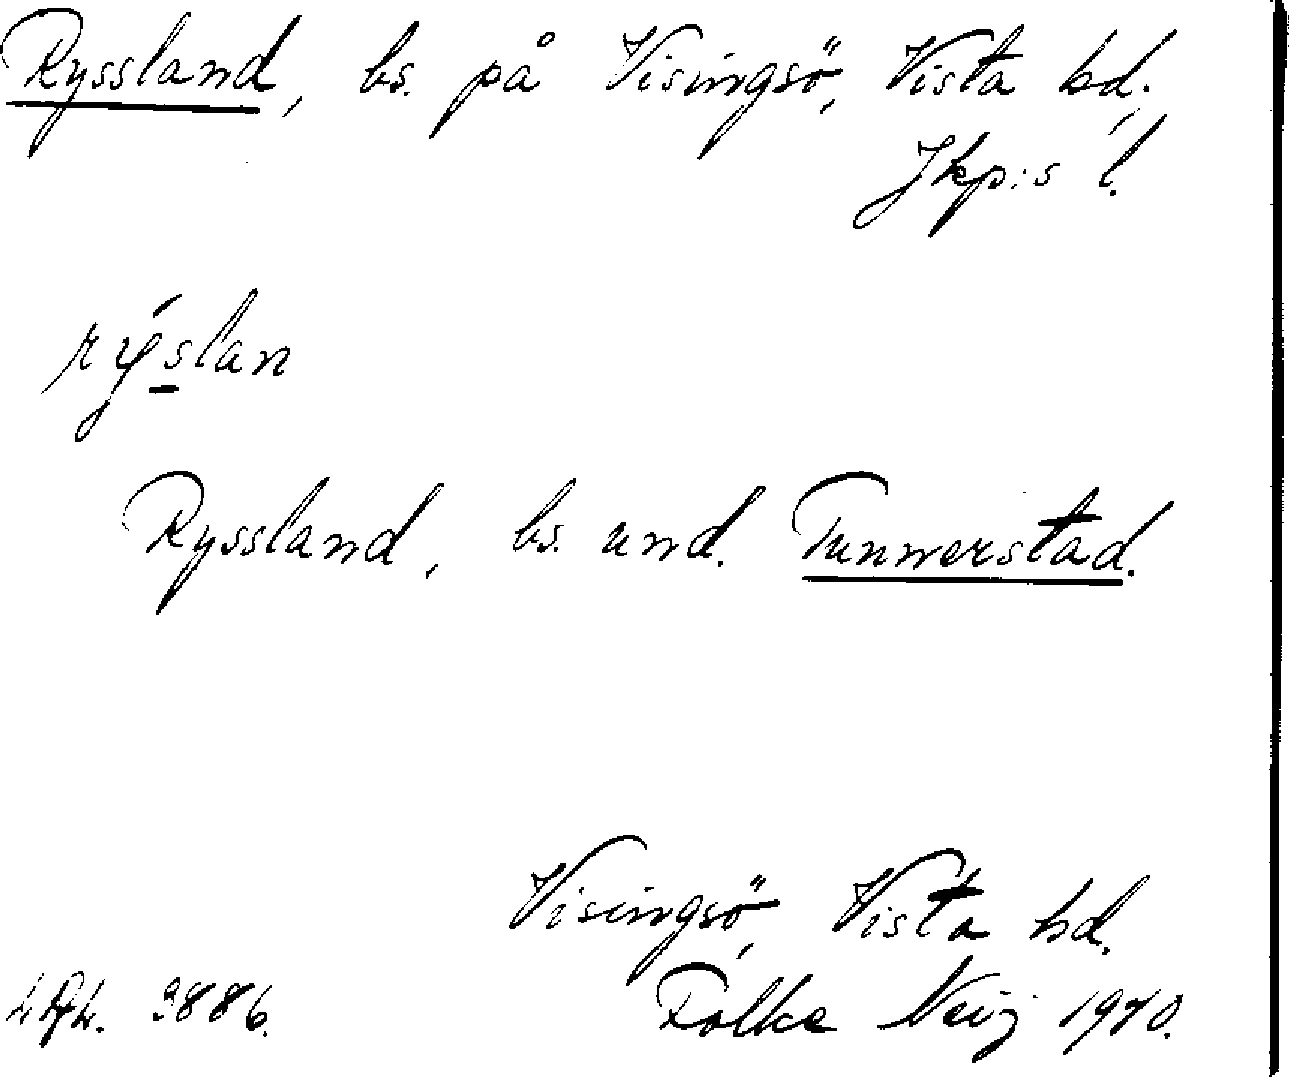 Ryssland, bs. på Visingsö, Vista hd.,
Jkp:s l.
rýslan
Ryssland, bs. und. Tunnerstad.
Visingsö, Vista hd.
3886.
Folke 1970.